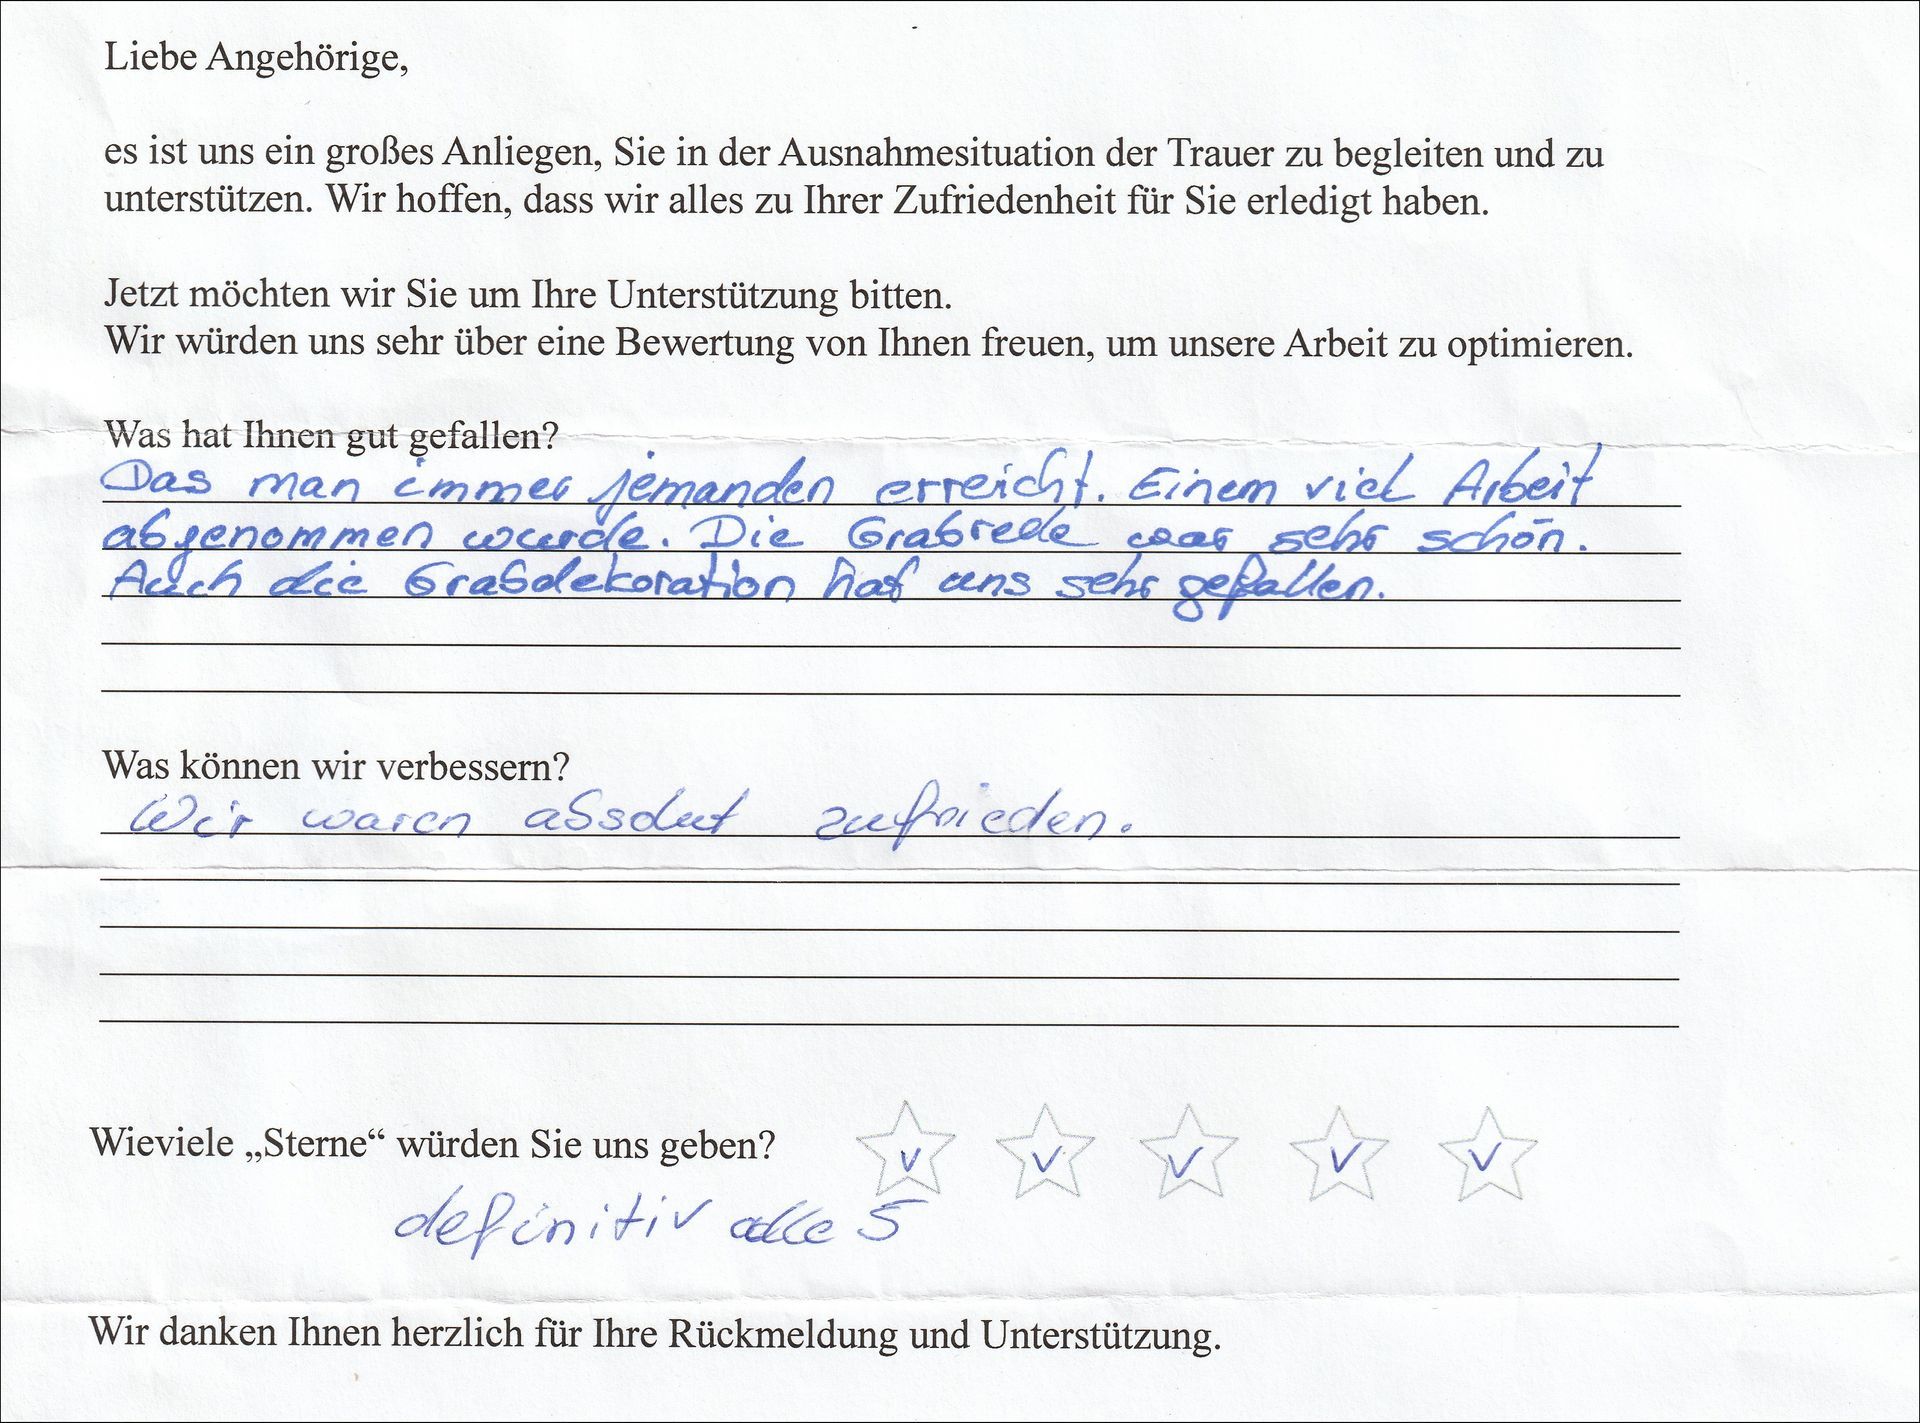 Liebe Angehörige,
es ist uns ein großes Anliegen, Sie in der Ausnahmesituation der Trauer zu begleiten und zu
unterstützen. Wir hoffen, dass wir alles zu Ihrer Zufriedenheit für Sie erledigt haben.
Jetzt möchten wir Sie um Ihre Unterstützung bitten.
Wir würden uns sehr über eine Bewertung von Ihnen freuen, um unsere Arbeit zu optimieren.
Was hat Ihnen gut gefallen?
Das man immer jemanden erreicht. Einem viel Arbeit
abgenommen wurde. Die Grabrede war sehr schön.
Auch die Grabdekoration hat uns sehr gefallen.
Was können wir verbessern?
Wir waren absolut zufrieden.
Wieviele „Sterne“ würden Sie uns geben?
definitiv alle 5
Wir danken Ihnen herzlich für Ihre Rückmeldung und Unterstützung.